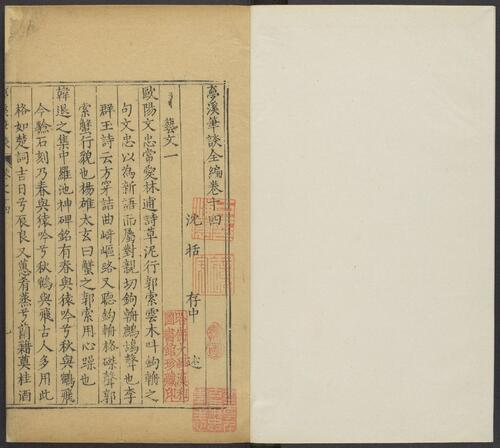 夢溪筆談全編卷十四
沈括 存中 述
藝文一
歐陽文忠嘗愛林逋詩草泥行郭索雲木叫鉤輈之
句文忠以為新語而屬對親切鉤輈鷓鴣聲也李
群玉詩云方穿詰曲崎嶇路又聽鉤輈格磔聲郭
索蟹行貌也楊雄太玄曰蟹之郭索用心躁也
韓退之集中羅池神碑銘有春與猿吟兮秋與鶴飛
今驗石刻乃春與猿吟兮秋鶴與飛古人多用此
格如楚詞吉日兮辰良又蕙肴蒸兮蘭藉奠桂酒